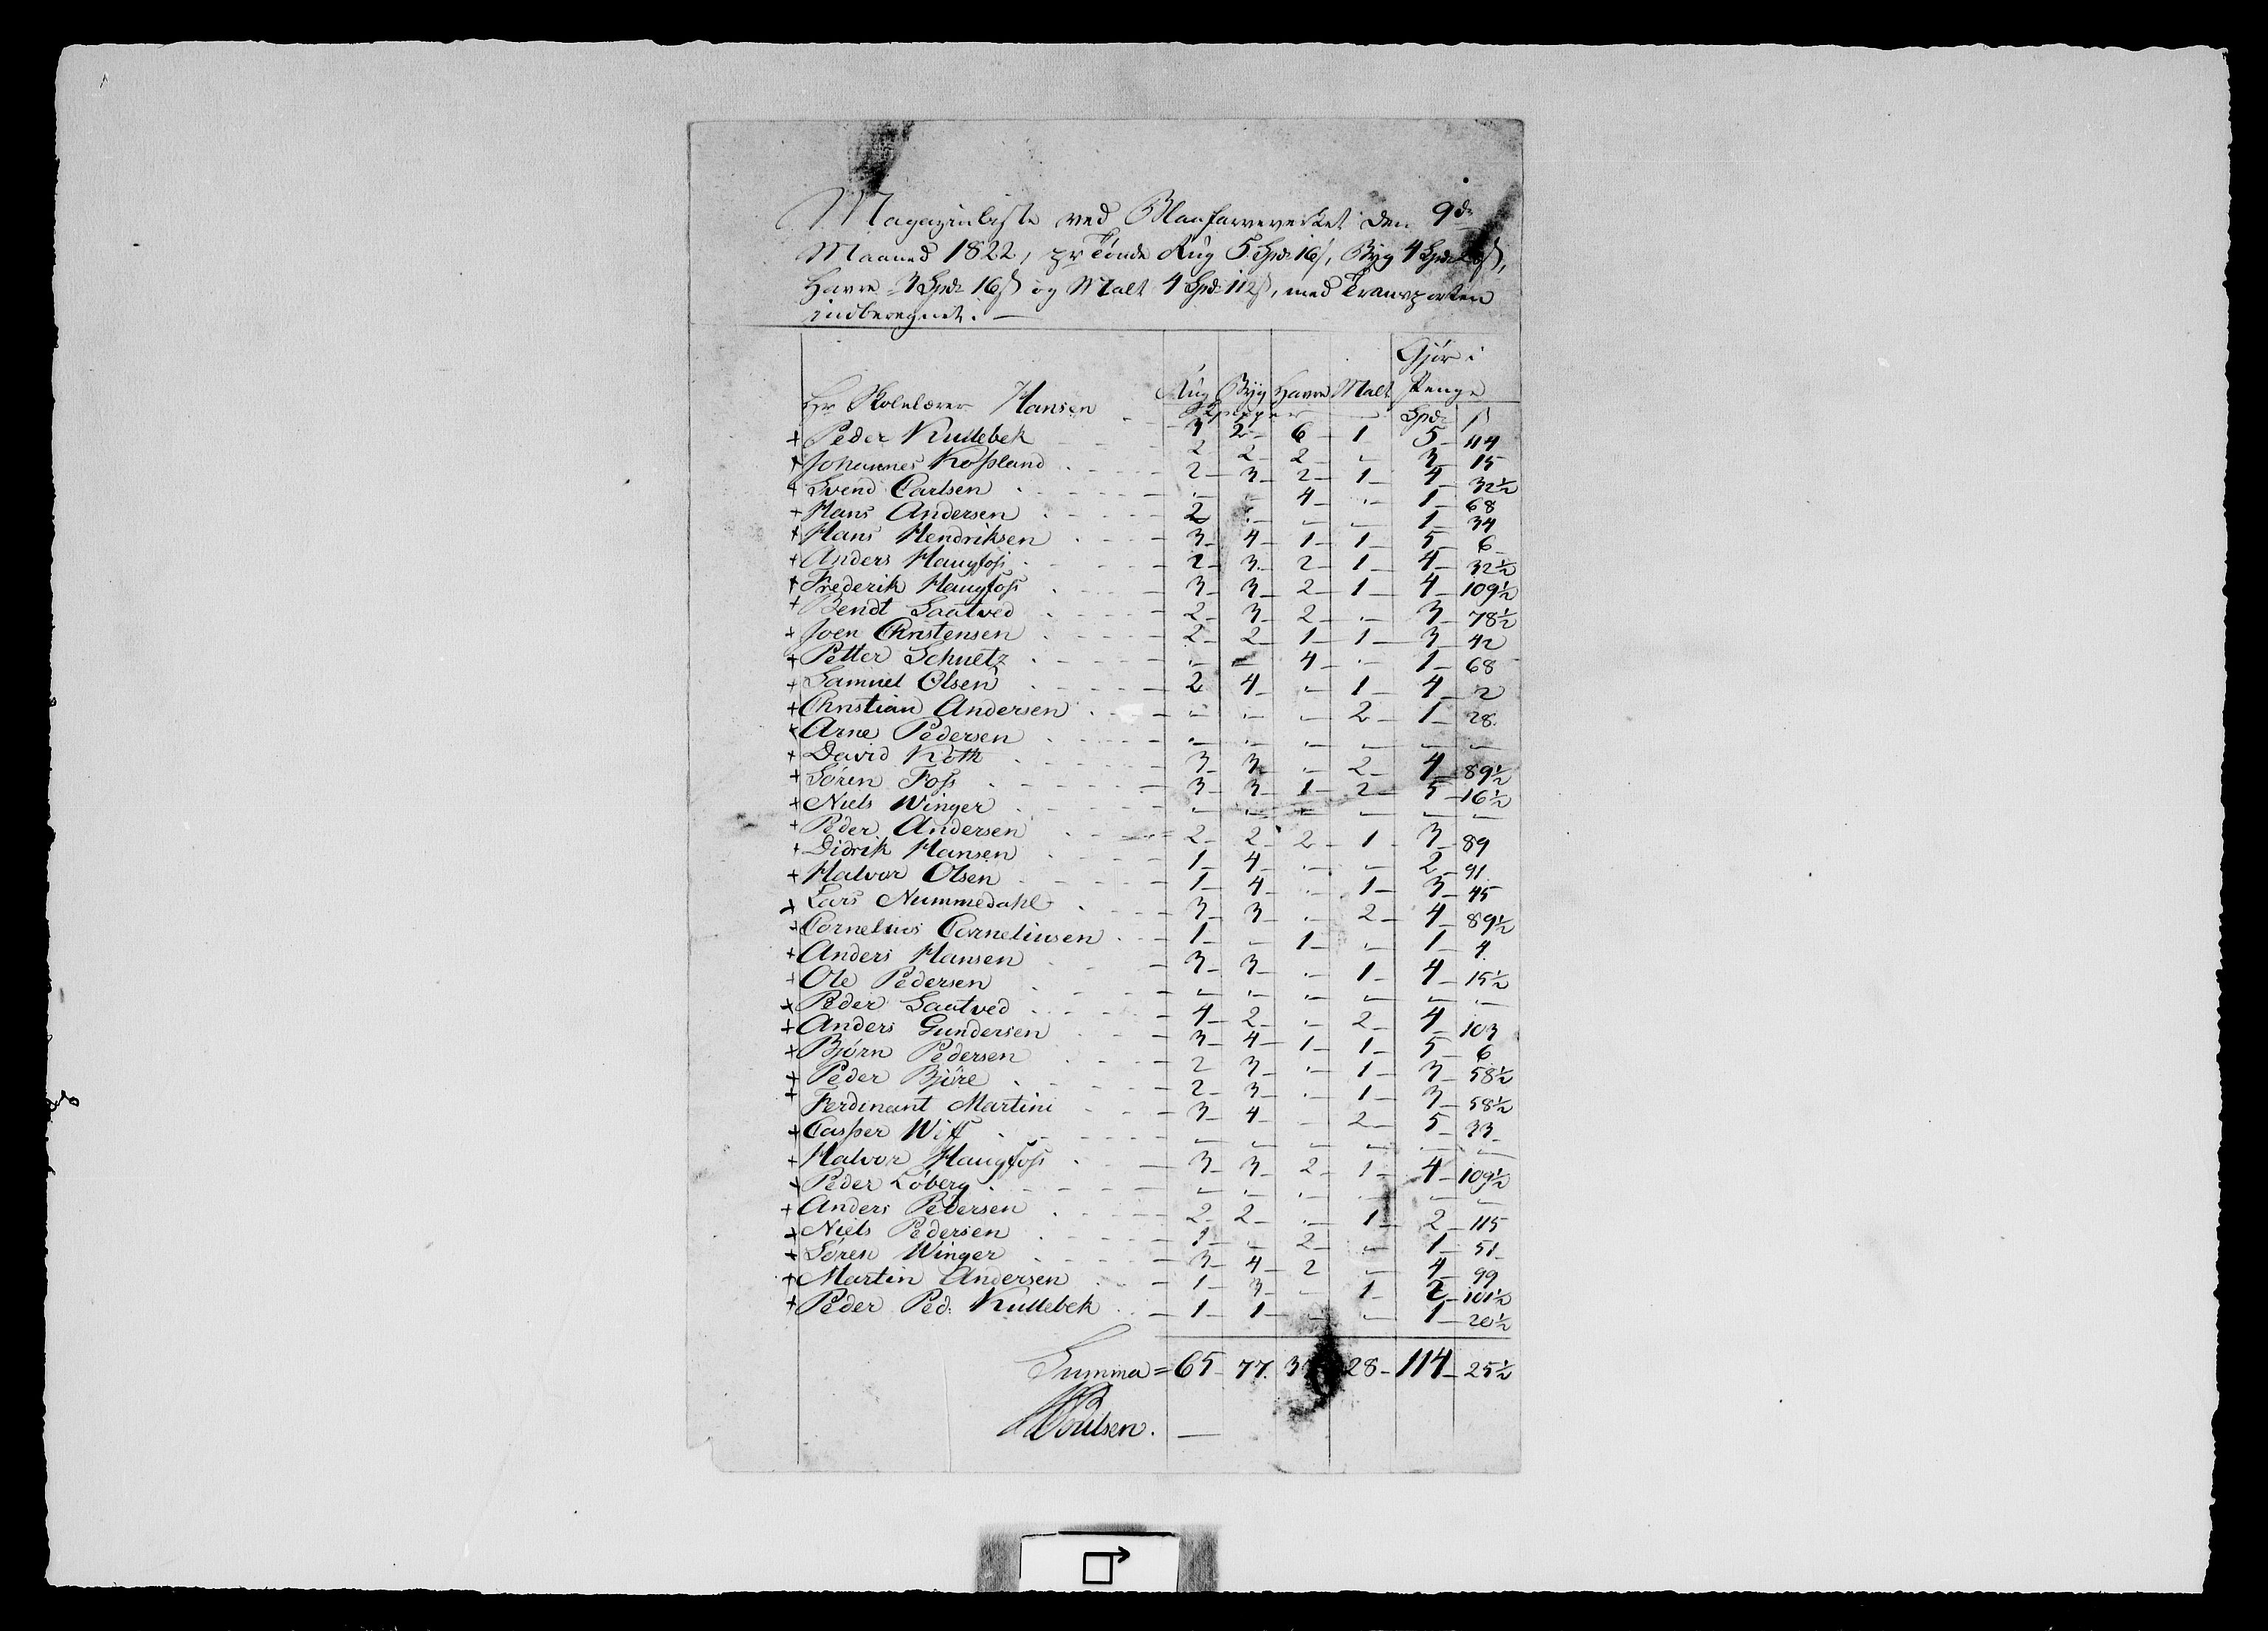 Magazinliste ved Blaafarveverket den 9de
Maaned 1822, pr Tönde Rug 5 Spd 16 ß, Byg 4 Spd ß,
Havre 3 Spd 16 ß og Malt 4 Spd 112 ß, med Transporten
indberegnet. —
Gjör i
Rug Byg Havre Malt Penge
Skjepper — Spdr ß
Hr Skolelærer Hansen - 3 2 - 6 - 1 5 - 114
+ Peder Kullebek - - - 2 2 2 - „ 3 - 15
+ Johannes Kopland - - - 2 - 3 - 2 - 1 - 4 - 32½
+ Svend Carlsen - - - „ „ 4 - „ 1 - 68
+ Hans Andersen - - - 2 „ „ „ 1 - 34
+ Hans Hendriksen - - - 3 - 4 - 1 - 1 - 5 - 6
+ Anders Haugfoss - - - 2 - 3 - 2 - 1 - 4 - 32½
+ Frederik Haugfoss - - - 3 - 3 - 2 - 1 - 4 - 109½
+ Bendt Saatved - - - 2 - 3 - 2 - „ 3 - 78½
+ Joen Christensen - - - 2 - 2 - 1 - 1 - 3 - 42
+ Petter Schueltz - - - „ „ 4 - „ 1 - 68
+ Samuel Olsen - - - 2 4 - „ 1 - 4 - 2
+ Christian Andersen - - - „ „ „ 2 - 1 - 28
+ Arne Pedersen - - - „ „ „ „ „ „
+ David Köth - - - 3 - 3 - „ 2 - 4 - 89½
+ Sören Foss - - - 3 - 3 - 1 - 2 - 5 - 16½
+ Niels Winger - - - „ „ „ „ „ „
+ Peder Andersen - - - 2 - 2 - 2 - 1 - 3 - 89
+ Didrik Hansen - - - 1 - 4 - „ „ 2 - 91
+ Halvor Olsen - - - 1 - 4 - „ 1 - 3 - 45
+ Lars Nummedahl - - - 3 - 3 - „ 2 - 4 - 89½
+ Cornelius Corneliusen - - 1 - „ 1 - „ 1 - 4
+ Anders Hansen - - - 3 - 3 - „ 1 - 4 - 15½
+ Ole Pedersen - - - „ „ „ „ „ „
+ Peder Saatved - - - 4 - 2 - „ 2 - 4 - 103
+ Anders Gundersen - - - 3 - 4 - 1 - 1 - 5 - 6
+ Björn Pedersen - - - 2 3 - „ 1 - 3 - 58½
+ Peder Björe - - - 2 - 3 - „ 1 - 3 - 58½
+ Ferdinant Martini - - - 3 - 4 - „ 2 - 5 - 33
+ Casper Wiff - - - „ „ „ „ „ „
+ Halvor Haugfoss - - - 3 - 3 - 2 - 1 - 4 - 109½
+ Peder Löberg - - - „ „ „ „ „ „
+ Anders Pedersen - - - 2 - 2 - „ 1 - 2 - 115
+ Niels Pedersen - - - 1 - „ 2 - „ 1 - 51
+ Sören Winger - - - 3 - 4 - 2 „ 4 - 99
+ Martin Andersen - - - 1 - 3 - „ 1 - 2 - 101½
+ Peder Ped: Kullebek - - - 1 - 1 - „ „ 1 - 20½
Summa = 65 - 77. 28 - 114 - 25½
Poulsen. —